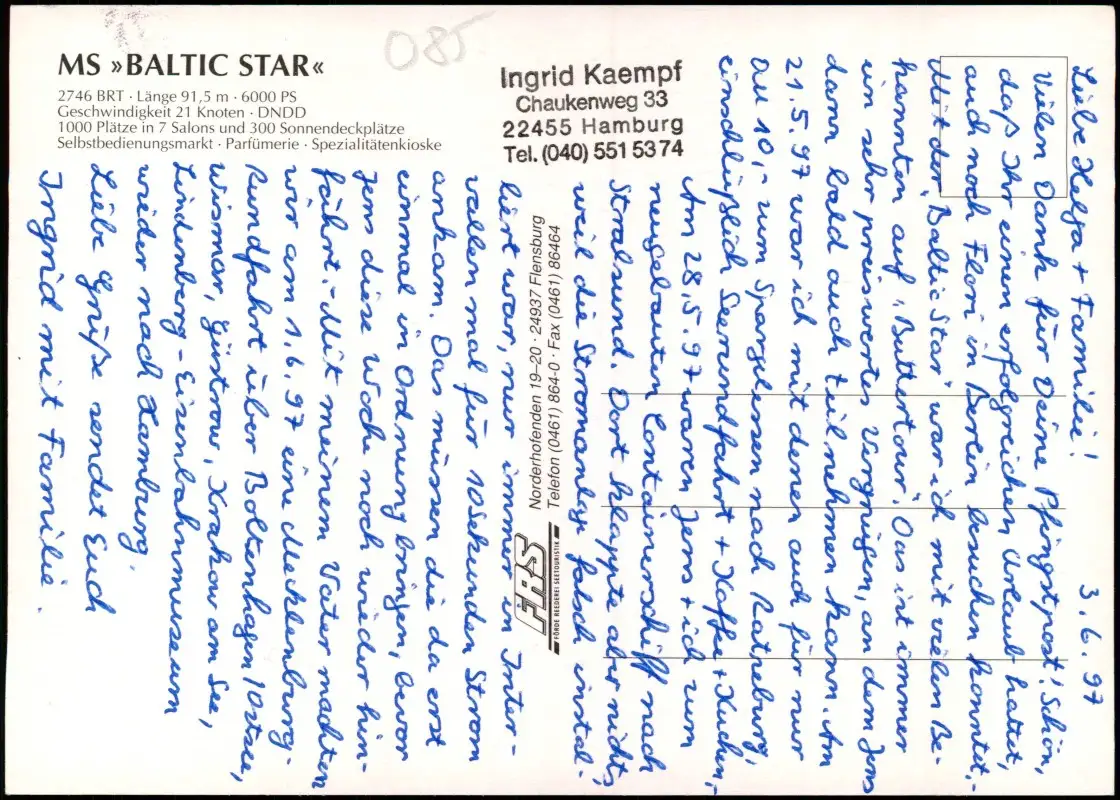 085
MS »BALTIC STAR«
2746 BRT · Länge 91,5 m · 6000 PS
Geschwindigkeit 21 Knoten · DNDD
1000 Plätze in 7 Salons und 300 Sonnendeckplätze
Selbstbedienungsmarkt · Parfümerie · Spezialitätenkioske
Ingrid Kaempf
Chaukenweg 33
22455 Hamburg
Tel. (040) 551 53 74
FRS
FÖRDE REEDEREI SEETOURISTIK
Norderhofenden 19–20 · 24937 Flensburg
Telefon (0461) 864-0 · Fax (0461) 86464
3.6.97
Liebe Helga + Familie!
Vielen Dank für Deine Pfingstpost! Schön,
daß Ihr einen erfolgreichen Urlaub hattet,
auch noch Fleri in Berlin besuchen konntet.-
Mit der "Baltic Star" war ich mit vielen Be-
kannten auf "Buttertour". Das ist immer
ein sehr preiswertes Vergnügen, an dem Jens
dann bald auch teilnehmen kann. Am
21.5.97 war ich mit denen auch für nur
DM 10,- zum Spargelessen nach Ratzeburg,
einschließlich Seenrundfahrt + Kaffee + Kuchen,-
Am 28.5.97 waren Jens + ich zum
neugebauten Containerschiff nach
Stralsund. Dort klappte aber nichts,
weil die Stromanlage falsch instal-
liert war, nur immer im Inter-
vallen mal für 10 Sekunden Strom
ankam. Das müssen die da erst
einmal in Ordnung bringen, bevor
Jens diese Woche noch wieder hin-
fährt.- Mit meinem Vater machten
wir am 1.6.97 eine Mecklenburg-
Rundfahrt über Boltenhagen/Ostsee,
Wismar, Güstrow, Krakow am See,
Lindenberg-Eisenbahnmuseum
wieder nach Hamburg.
Liebe Grüße sendet Euch
Ingrid mit Familie.